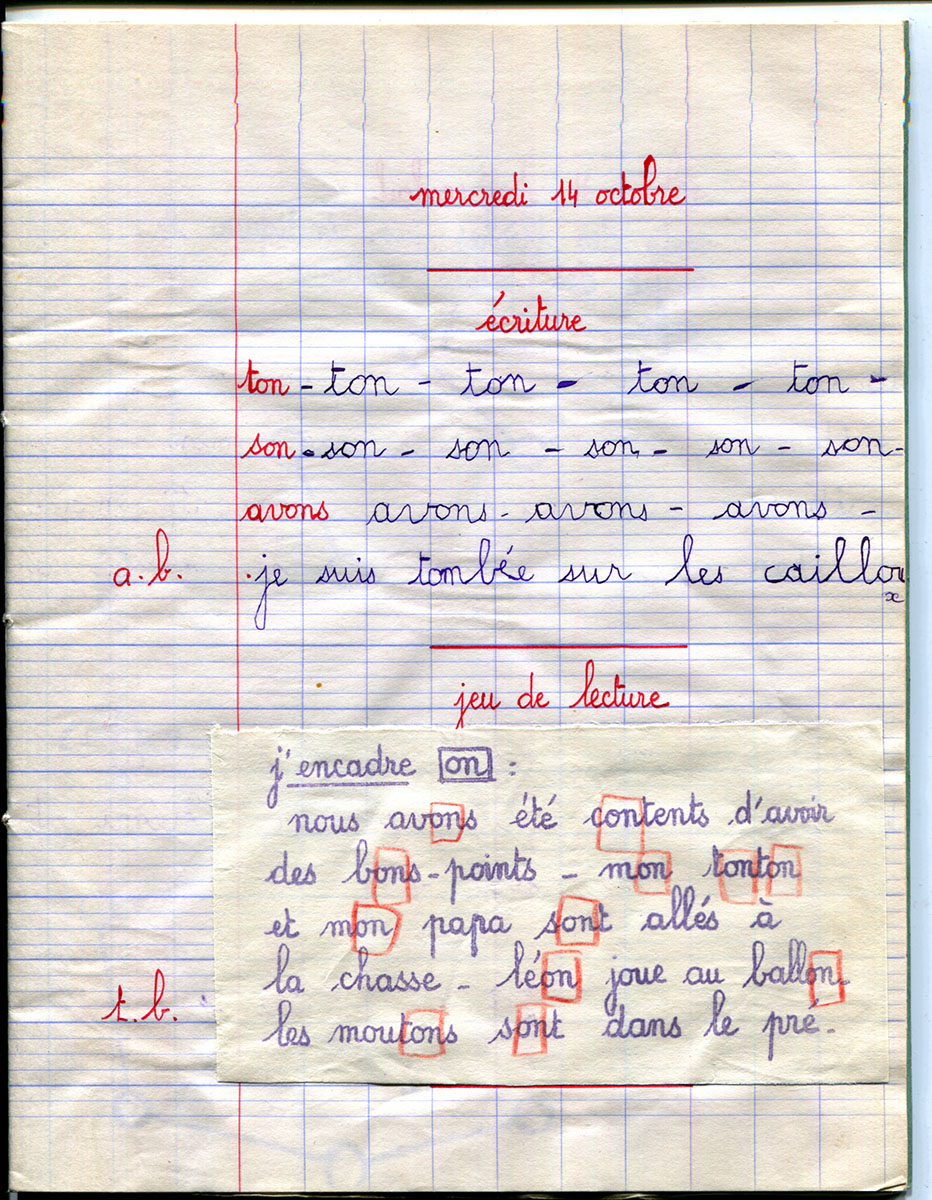 mercredi 14 octobre
écriture
ton - ton - ton - ton - ton -
son - son - son - son - son - son -
avons avons - avons - avons -
a.b. je suis tombée sur les cailloux
jeu de lecture
j'encadre on :
nous avons été contents d'avoir
des bons-points - mon tonton
et mon papa sont allés à
la chasse - léon joue au ballon.
t.b. les moutons sont dans le pré.